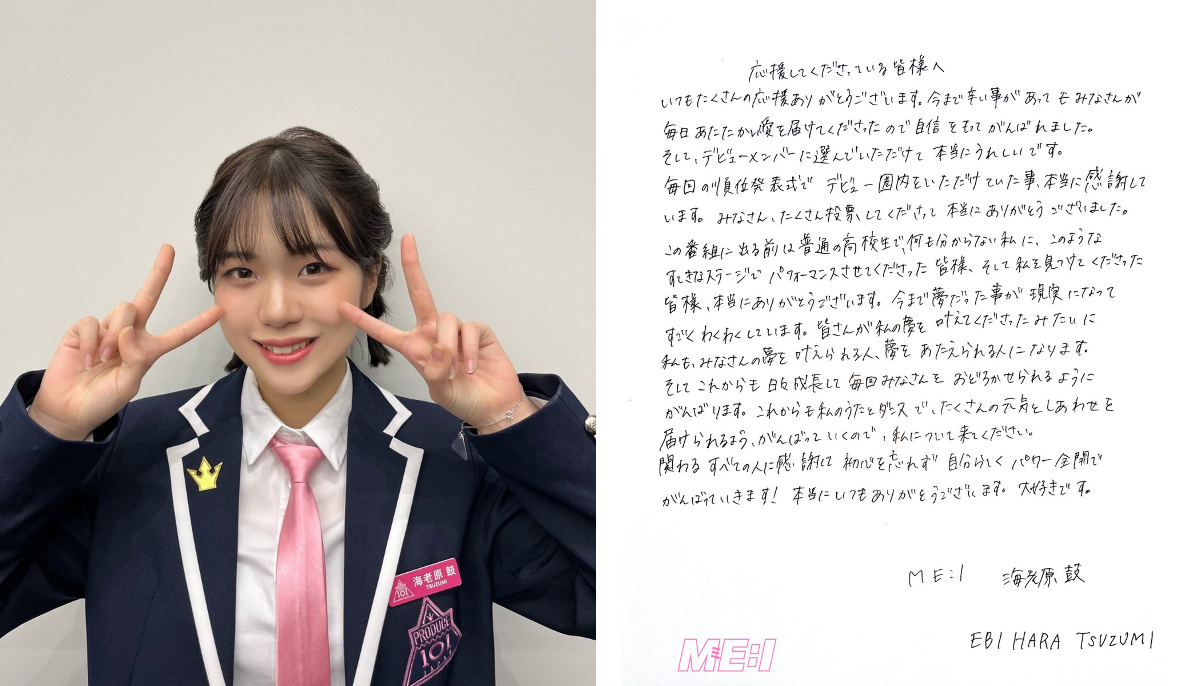 海老原 鼓
TSUZUMI
101
PRODUCE
101
JAPAN
応援してくださっている皆様へ
いつもたくさんの応援ありがとうございます。今まで辛い事があってもみなさんが
毎日あたたかい愛を届けてくださったので自信をもてがんばれました。
そして、デビューメンバーに選んでいただけて本当にうれしいです。
毎回の順位発表式でデビュー圏内をいただけていた事、本当に感謝して
います。みなさん、たくさん投票してくださって本当にありがとうございました。
この番組に出る前は普通の高校生で、何も分からない私に、このような
すてきなステージでパフォーマンスさせてくださった皆様、そして私を見つけてくださった
皆様、本当にありがとうございます。今まで夢だった事が現実になって
すごくわくわくしています。皆さんが私の夢を叶えてくださったみたいに
私も、みなさんの夢を叶えられる人、夢をあたえられる人になります。
そしてこれからも日々成長して毎回みなさんをおどろかせられるように
がんばります。これからも私のうたとダンスで、たくさんの元気としあわせを
届けられるよう、がんばっていくので、私について来てください。
関わるすべての人に感謝して初心を忘れず自分らしくパワー全開で
がんばっていきます！本当にいつもありがとうございます。大好きです。
ME:I 海老原 鼓
EBIHARA TSUZUMI
ME:I